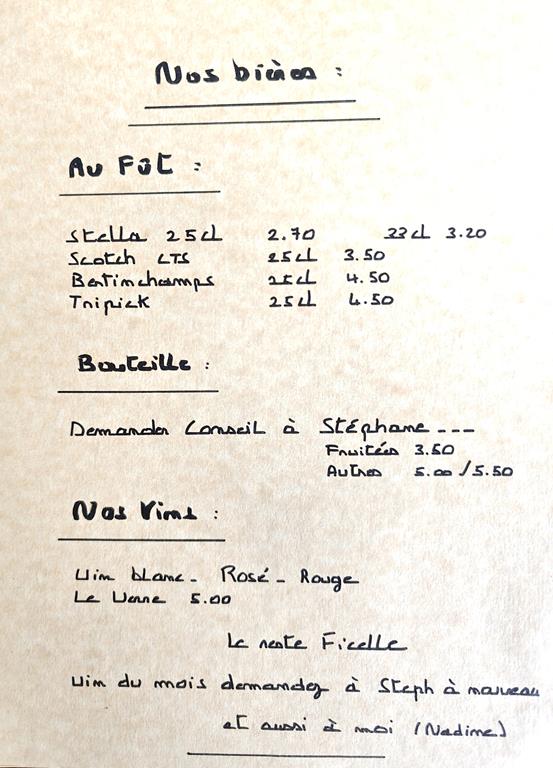 Nos bières :
Au Fût :
Stella 25cl 2.70 33cl 3.20
Scotch CTS 25cl 3.50
Bertinchamps 25cl 4.50
Tripick 25cl 4.50
Bouteille :
Demander Conseil à Stéphane ---
Fruitées 3.50
Autres 5.00/5.50
Nos Vins :
Vin blanc - Rosé - Rouge
Le Verre 5.00
Le reste Ficelle
Vin du mois demandez à Steph à nouveau
et aussi à moi (Nadine)